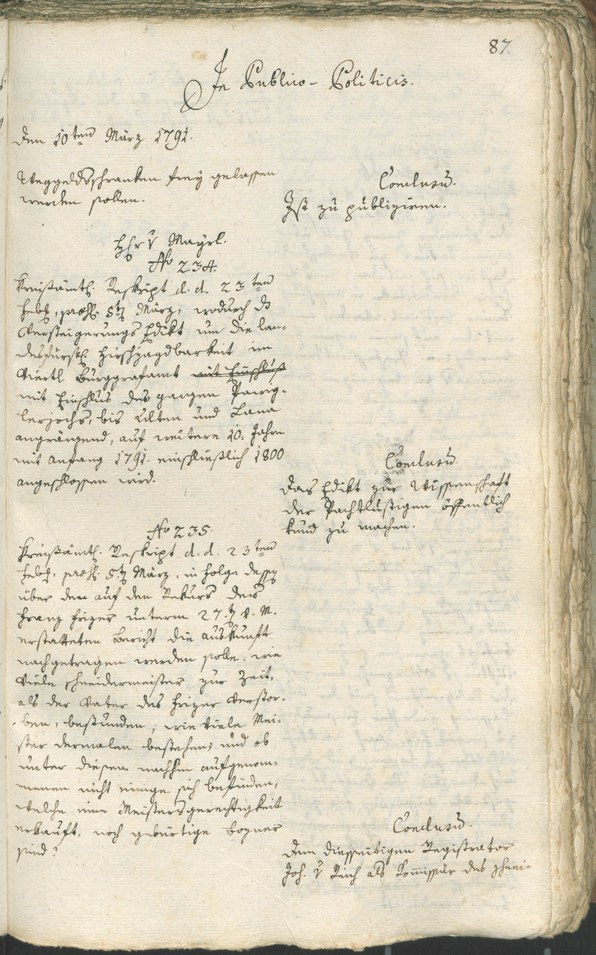 87.
In Publico-Politicis.
den 10ten März 1791.
Weggeldsschranken frey gelassen
werden sollen.
Conclusum.
Ist zu publiziren.
Hr v Mayrl.
No 234.
Kreisämtl. Reskript d. d. 23ten
Feb. praes. 5ten März, wodurch das
Versteigerungs Edikt um die lan-
desfürstl. Hirschjagdbarkeit im
Viertl Burggrafamt mit Einschluß
mit Einschluß des ganzen
bis Ulten und Lana
angränzend, auf weitere 10. Jahre
mit Anfang 1791. einschlüßlich 1800
angeschlossen wird.
Conclusum.
Das Edikt zur Wissenschaft
der Pachtlustigen öffentlich
kund zu machen.
No 235.
Kreisämtl. Reskript d. d. 23ten
Feb. praes. 5ten März, in Folge dessen
über den auf den Rekurs des
Franz unterm 27. v. M.
erstatteten Bericht die Auskunft
nachgetragen werden solle, wie
viele Schneidermeister zur Zeit,
als der Vater des verstor-
ben, bestunden; wie viele Mei-
ster dermalen bestehen; und ob
unter diesen nachhin aufgenom-
menen nicht einige sich befinden,
welche eine Meistersgerechtigkeit
erkauft, noch gebürtige Bozner
sind?
Conclusum.
Dem diesseitigen Registrator
Joh. v Reich als Kommissär des Schnei-